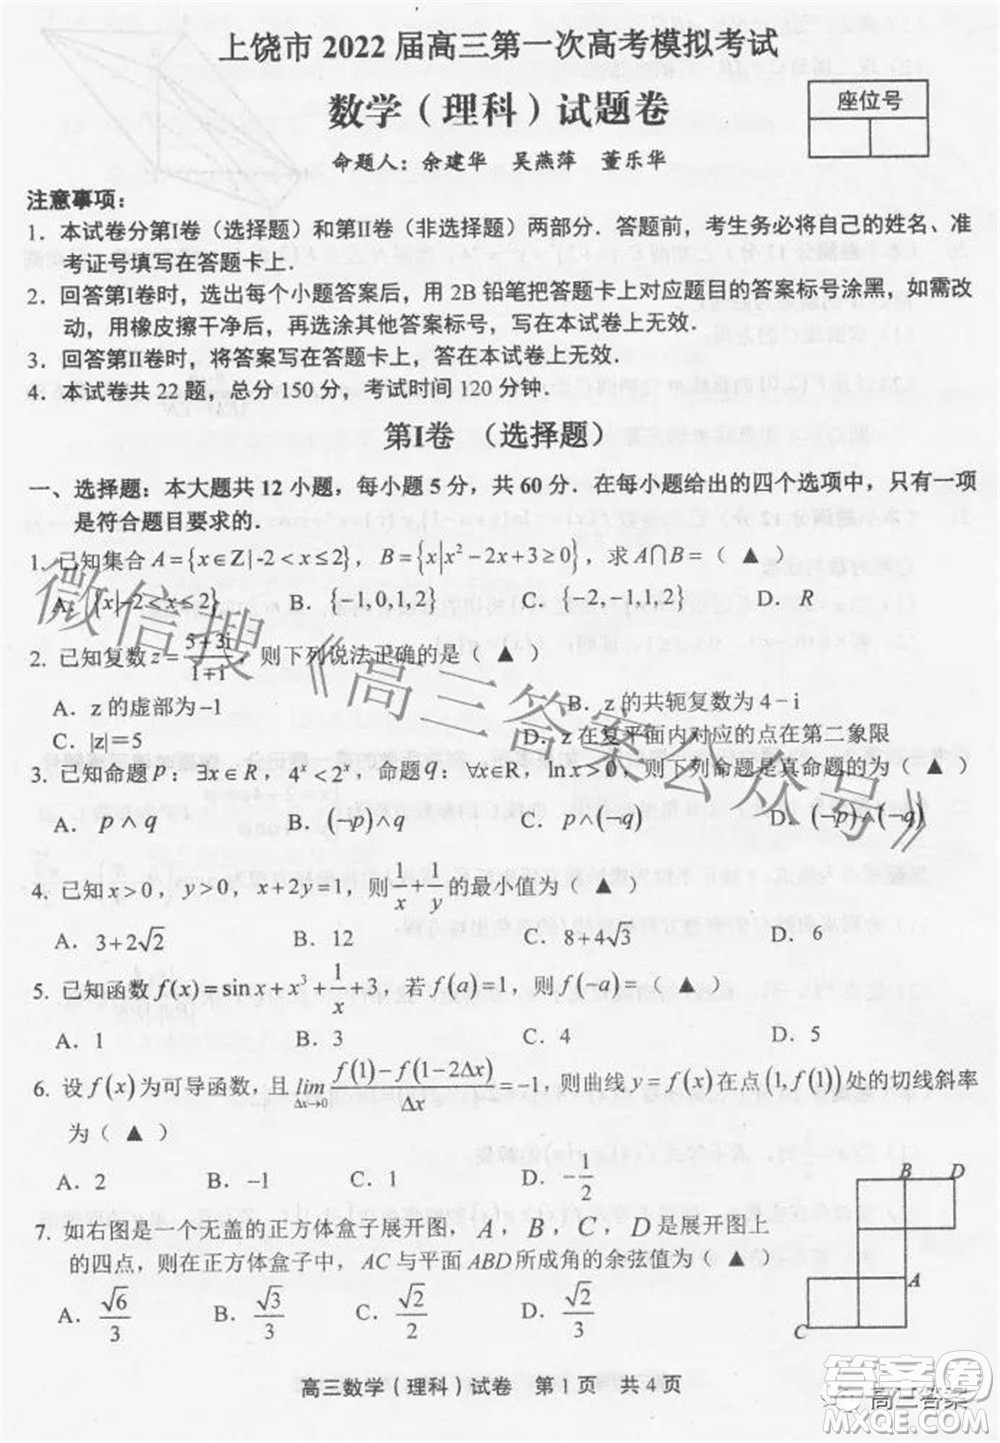 上饶市 2022 届高三第一次高考模拟考试
数学（理科）试题卷
座位号
命题人：余建华 吴燕萍 董乐华
注意事项：
1．本试卷分第I卷（选择题）和第II卷（非选择题）两部分．答题前，考生务必将自己的姓名、准
考证号填写在答题卡上．
2．回答第I卷时，选出每个小题答案后，用 2B 铅笔把答题卡上对应题目的答案标号涂黑，如需改
动，用橡皮擦干净后，再选涂其他答案标号，写在本试卷上无效．
3．回答第II卷时，将答案写在答题卡上，答在本试卷上无效．
4．本试卷共 22 题，总分 150 分，考试时间 120 分钟．
第I卷 （选择题）
一、选择题：本大题共 12 小题，每小题 5 分，共 60 分．在每小题给出的四个选项中，只有一项
是符合题目要求的．
1．已知集合 A={x∈Z|-2<x≤2}，B={x|x²-2x+3≥0}，求 A∩B=（ ▲ ）
A．{x|-2<x≤2} B．{-1,0,1,2} C．{-2,-1,1,2} D．R
2．已知复数 z=(5+3i)/(1+i)，则下列说法正确的是（ ▲ ）
A．z 的虚部为 -1 B．z 的共轭复数为 4-i
C．|z|=5 D．z 在复平面内对应的点在第二象限
3．已知命题 p：∃x∈R，4ˣ<2ˣ，命题 q：∀x∈R，ln x>0，则下列命题是真命题的为（ ▲ ）
A．p∧q B．(¬p)∧q C．p∧(¬q) D．(¬p)∧(¬q)
4．已知 x>0，y>0，x+2y=1，则 1/x+1/y 的最小值为（ ▲ ）
A．3+2√2 B．12 C．8+4√3 D．6
5．已知函数 f(x)=sin x+x³+1/x+3，若 f(a)=1，则 f(-a)=（ ▲ ）
A．1 B．3 C．4 D．5
6．设 f(x) 为可导函数，且 lim Δx→0 (f(1)-f(1-2Δx))/Δx=-1，则曲线 f(x) 在点 (1,f(1)) 处的切线斜率
为（ ▲ ）
A．2 B．-1 C．1 D．-1/2
7．如右图是一个无盖的正方体盒子展开图，A，B，C，D 是展开图上
的四点，则在正方体盒子中，AC 与平面 ABD 所成角的余弦值为（ ▲ ）
A．√6/3 B．√3/3 C．√2/2 D．√2/3
B D
A
C
高三数学（理科）试卷 第 1 页 共 4 页
微信搜《高三答案公众号》
高三答案